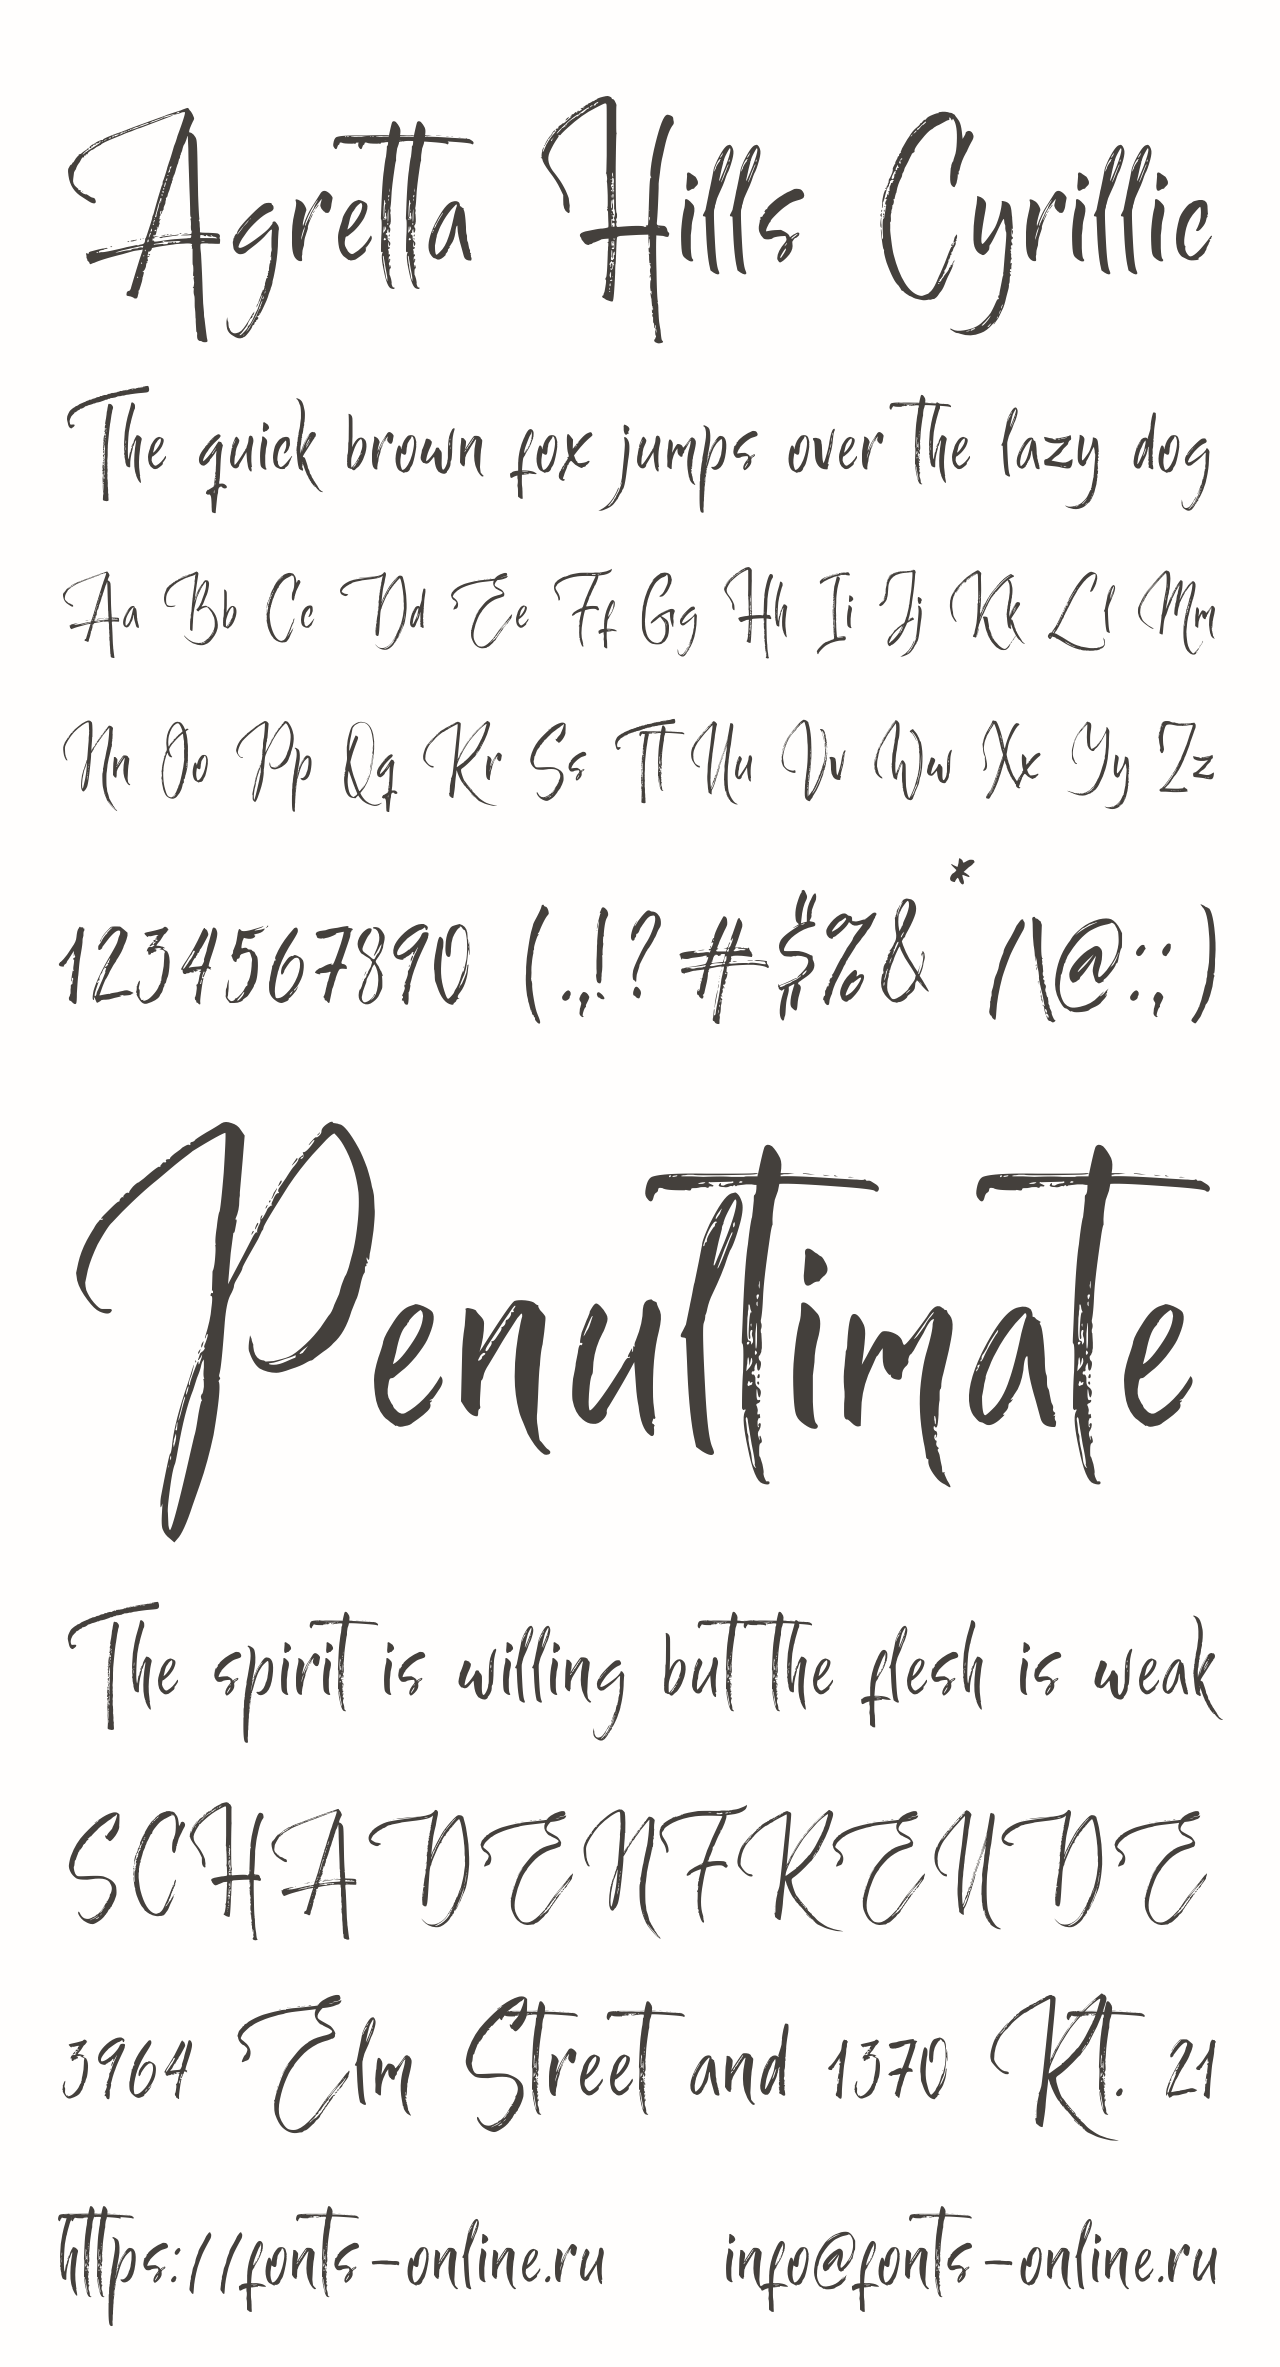 Agretta Hills Cyrillic
The quick brown fox jumps over the lazy dog
Aa Bb Cc Dd Ee Ff Gg Hh Ii Jj Kk Ll Mm
Nn Oo Pp Qq Rr Ss Tt Uu Vv Ww Xx Yy Zz
1234567890 (.,!?#$%&* /\@:;)
Penultimate
The spirit is willing but the flesh is weak
SCHADENFREUDE
3964 Elm Street and 1370 Rt. 21
https://fonts-online.ru info@fonts-online.ru